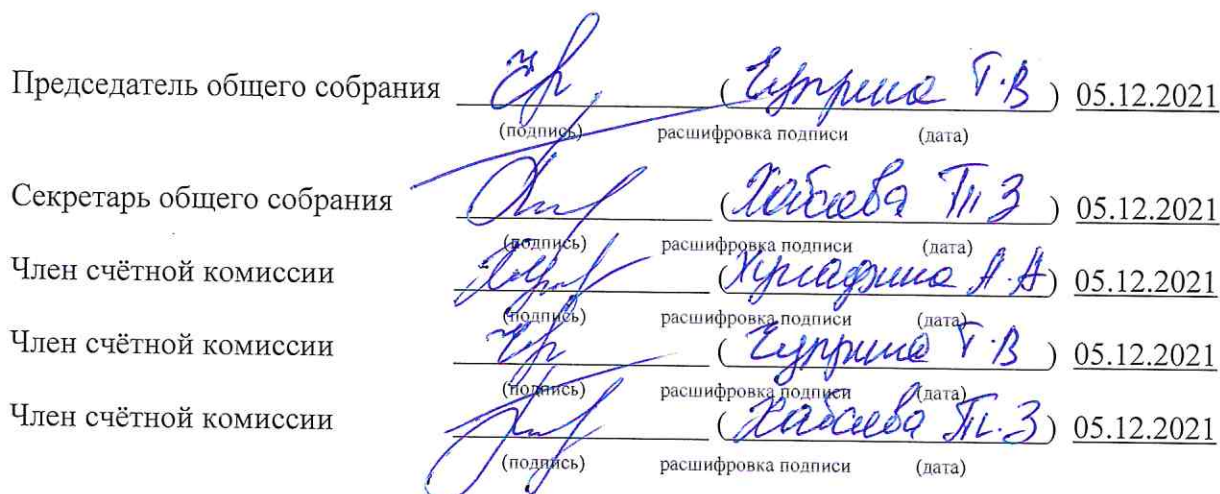 Председатель общего собрания (Чуприна Т.В) 05.12.2021
(подпись) расшифровка подписи (дата)
Секретарь общего собрания (Хабаева Т З) 05.12.2021
(подпись) расшифровка подписи (дата)
Член счётной комиссии ( А.А) 05.12.2021
(подпись) расшифровка подписи (дата)
Член счётной комиссии (Чуприна Т.В) 05.12.2021
(подпись) расшифровка подписи (дата)
Член счётной комиссии (Хабаева Т.З) 05.12.2021
(подпись) расшифровка подписи (дата)